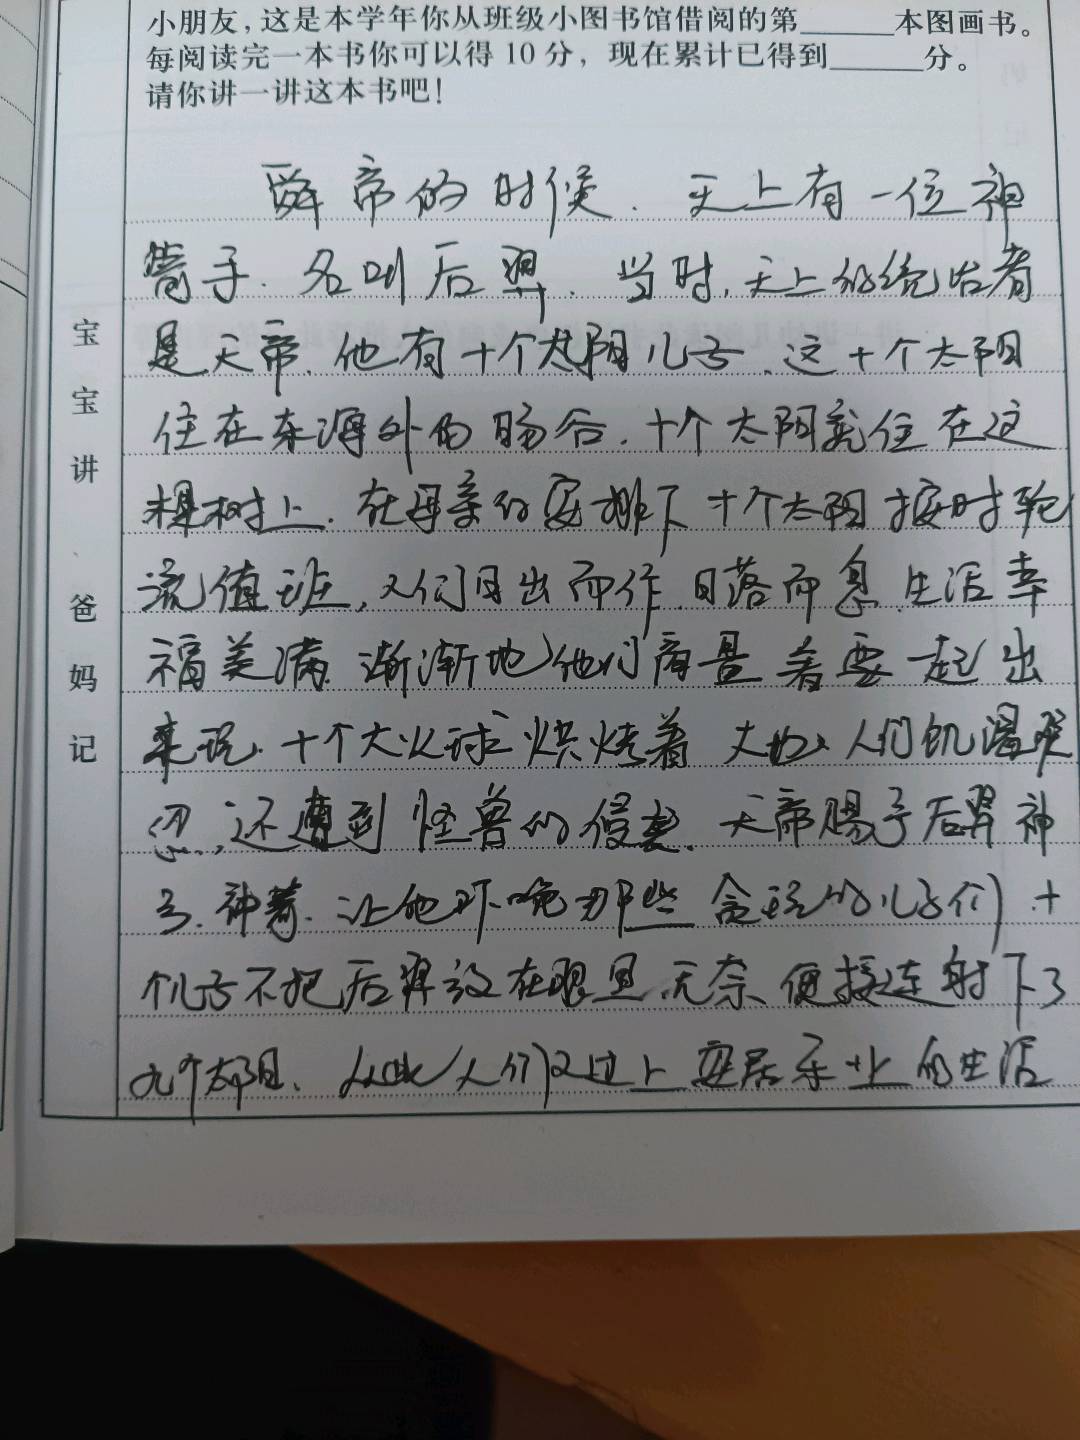 小朋友，这是本学年你从班级小图书馆借阅的第______本图画书。
每阅读完一本书你可以得10分，现在累计已得到______分。
请你讲一讲这本书吧！
宝宝讲、爸妈记
舜帝的时候．天上有一位神
箭手．名叫后羿．当时，天上的统治者
是天帝．他有十个太阳儿子．这十个太阳
住在东海外的旸谷．十个太阳就住在这
棵树上．在母亲的安排下十个太阳按时轮
流值班，人们日出而作．日落而息．生活幸
福美满．渐渐地他们商量着要一起出
来玩．十个大火球烘烤着大地，人们饥渴难
忍，还遭到怪兽的侵袭．天帝赐予后羿神
弓．神箭．让他吓唬那些贪玩的儿子们．十
个儿子不把后羿放在眼里．无奈．便接连射下了
九个太阳．从此人们又过上安居乐业的生活